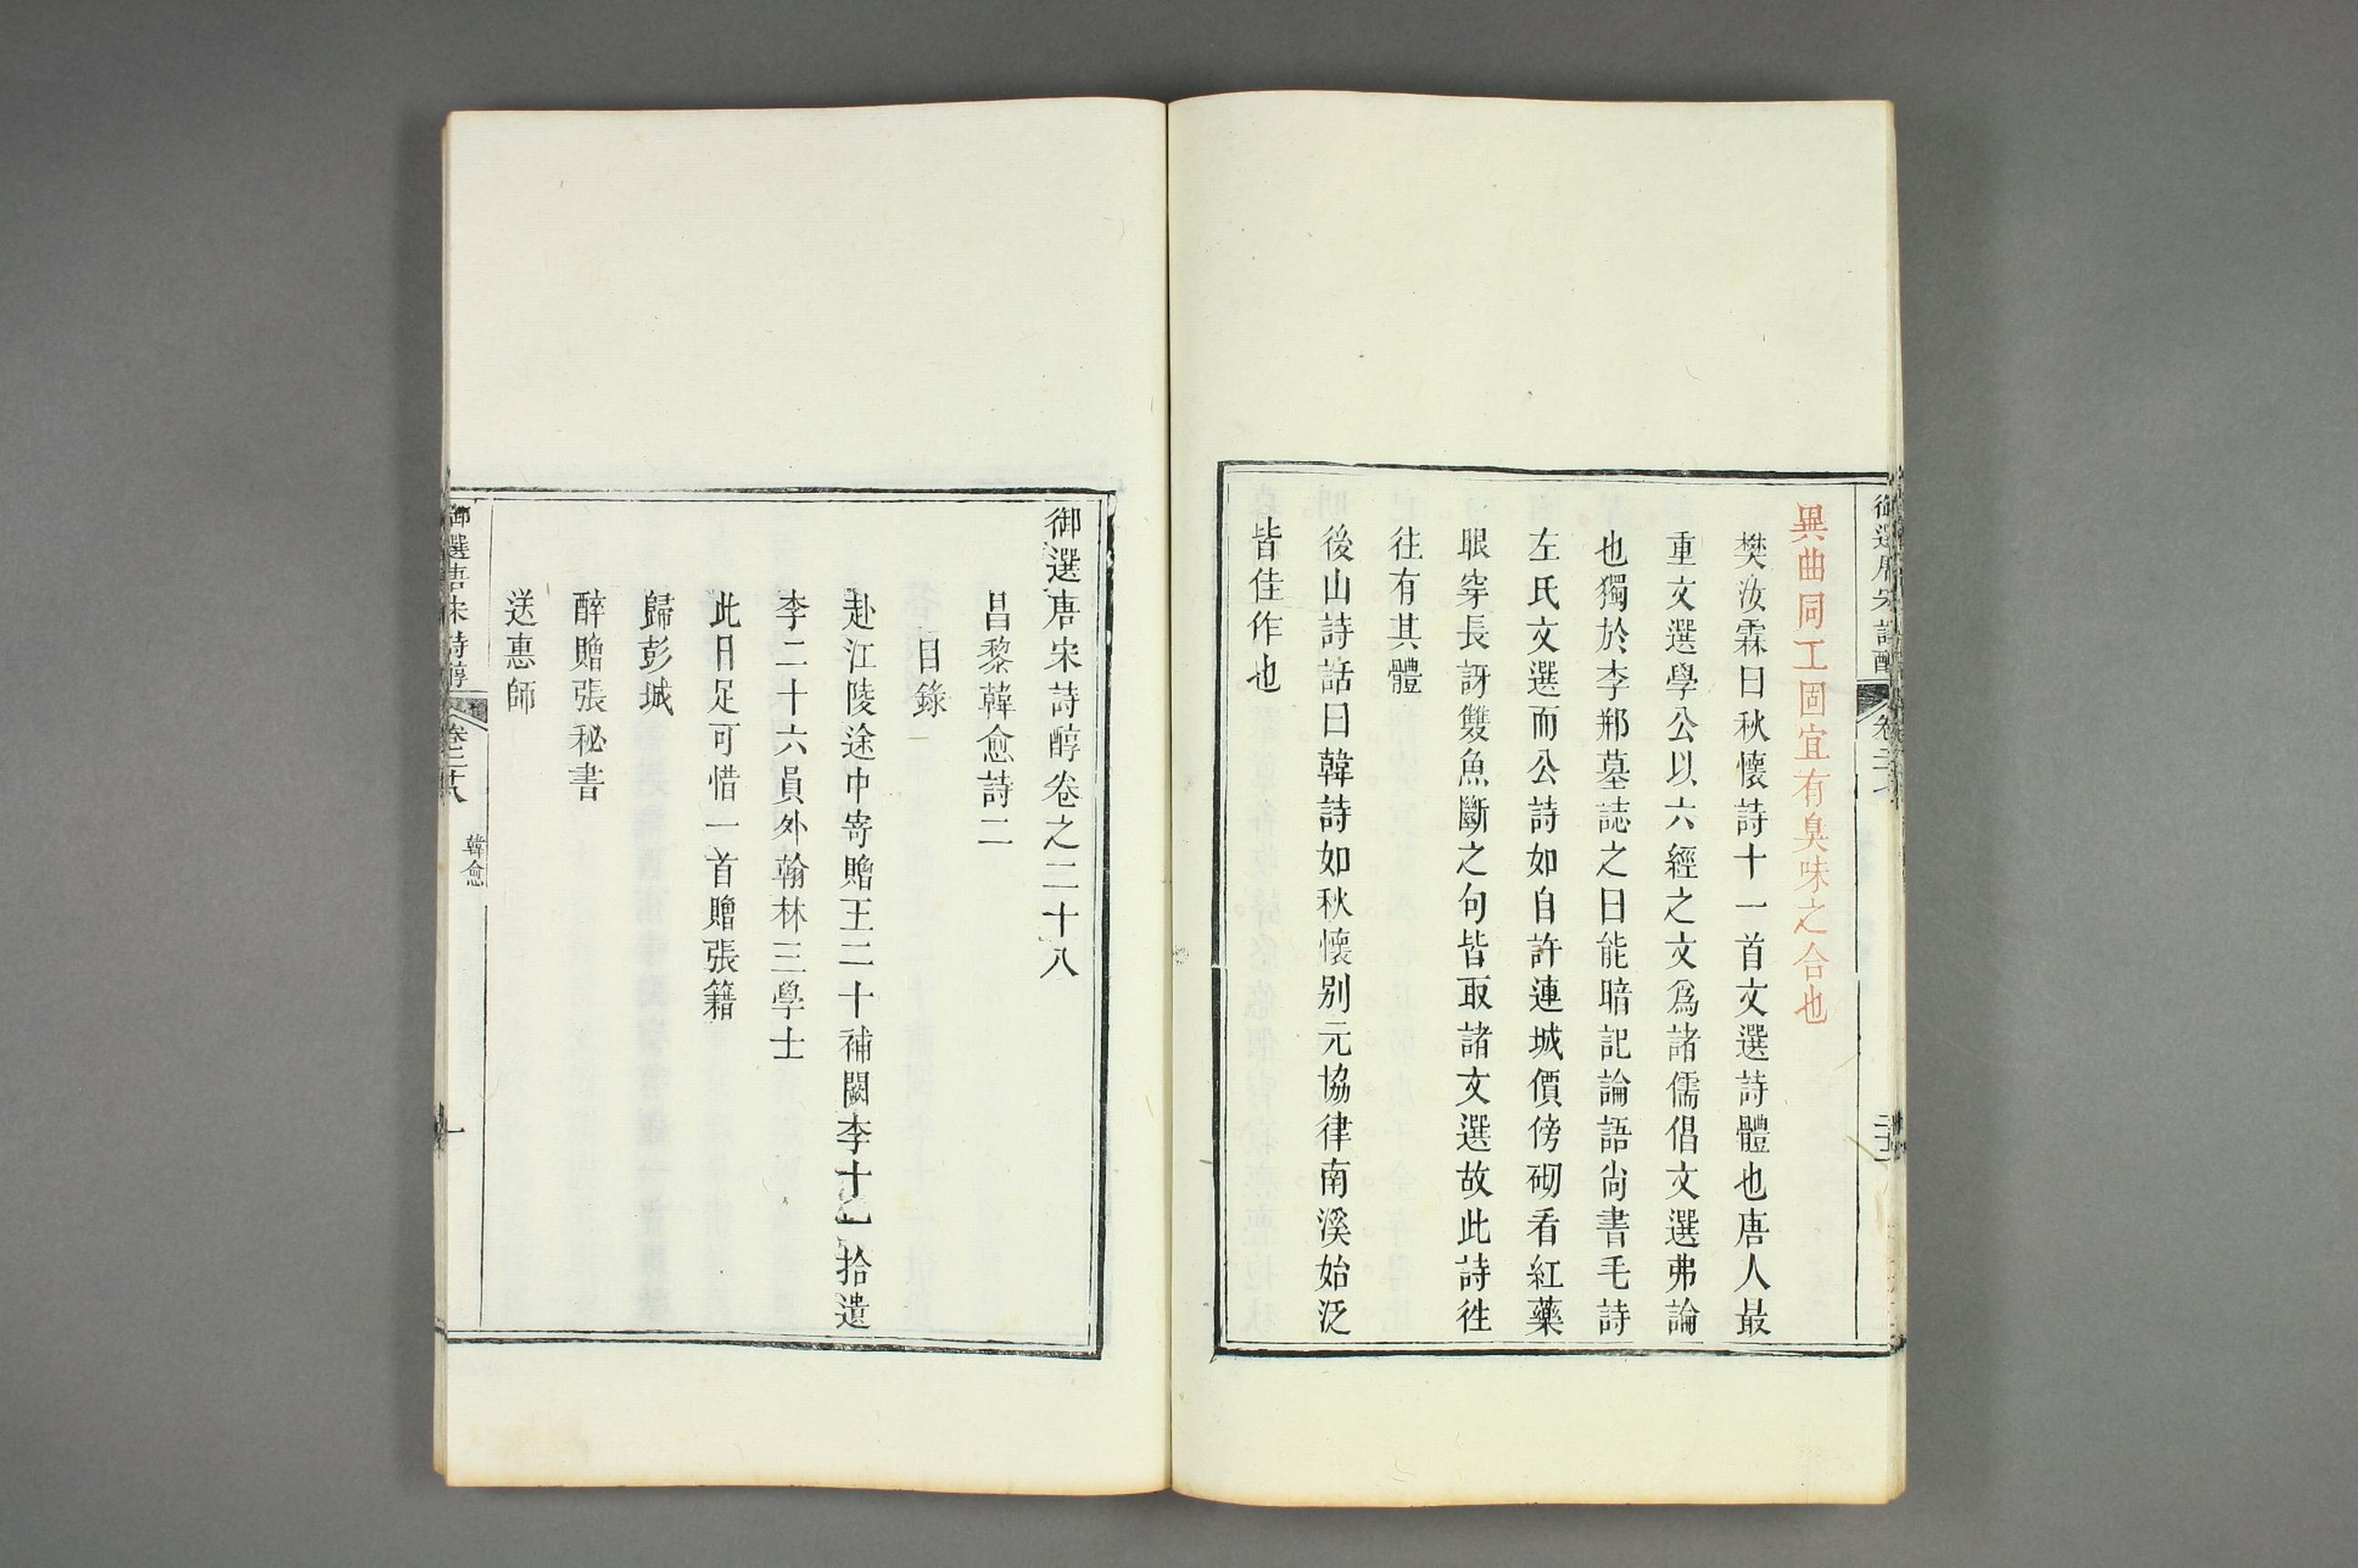 異曲同工固宜有臭味之合也
樊汝霖曰秋懷詩十一首文選詩體也唐人最
重文選學公以六經之文爲諸儒倡文選弗論
也獨於李邢墓誌之曰能暗記論語尙書毛詩
左氏文選而公詩如自許連城價傍砌看紅藥
眼穿長訝雙魚斷之句皆取諸文選故此詩徃
往有其體
後山詩話曰韓詩如秋懷别元協律南溪始泛
皆佳作也
御選唐宋詩醇卷之二十八
昌黎韓愈詩二
目錄
赴江陵途中寄贈王二十補闕李十一拾遺
李二十六員外翰林三學士
此日足可惜一首贈張籍
歸彭城
醉贈張秘書
送惠師
御選唐宋詩醇
卷二十八
韓愈
一